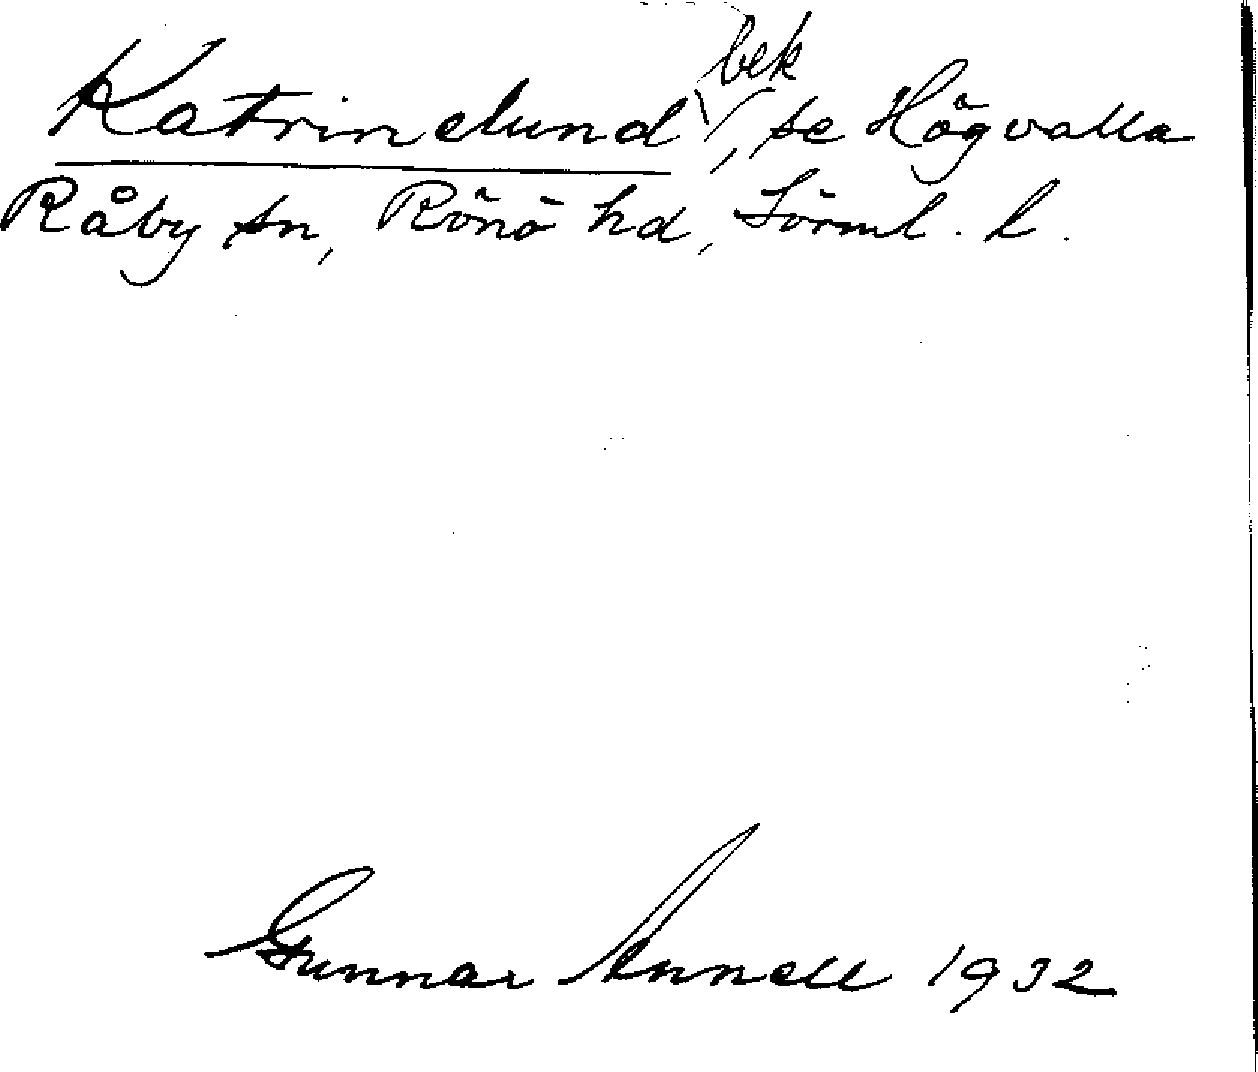 Katrinelund bek, se Högvalla
Råby sn, Rönö hd, Sörml. l.
Gunnar Annell 1932